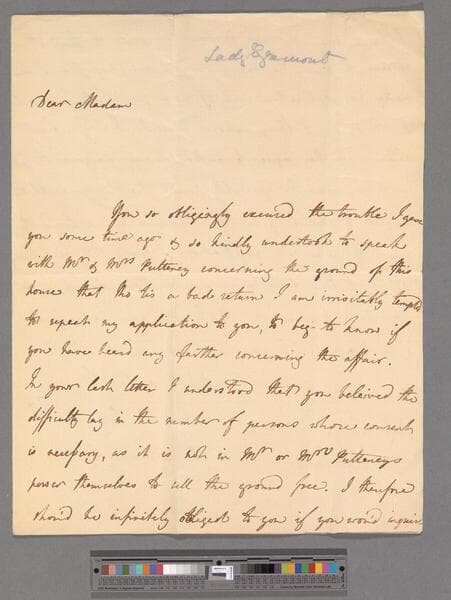 Lady Egremont
Dear Madam
You so obligingly excused the trouble I gave
you some time ago & so kindly undertook to speak
with Mr & Mrs Pulteney concerning the ground of this
house that tho tis a bad return I am irrisistably tempted
to repeat my application to you, to beg to know if
you have heard any farther concerning the affair.
In your last letter I understood that you beleived the
difficulty lay in the number of persons whose consent
is necessary, as it is not in Mr or Mrs Pulteneys
power themselves to sell the ground free. I therefore
shoud be infinitely obliged to you if you woud inquire